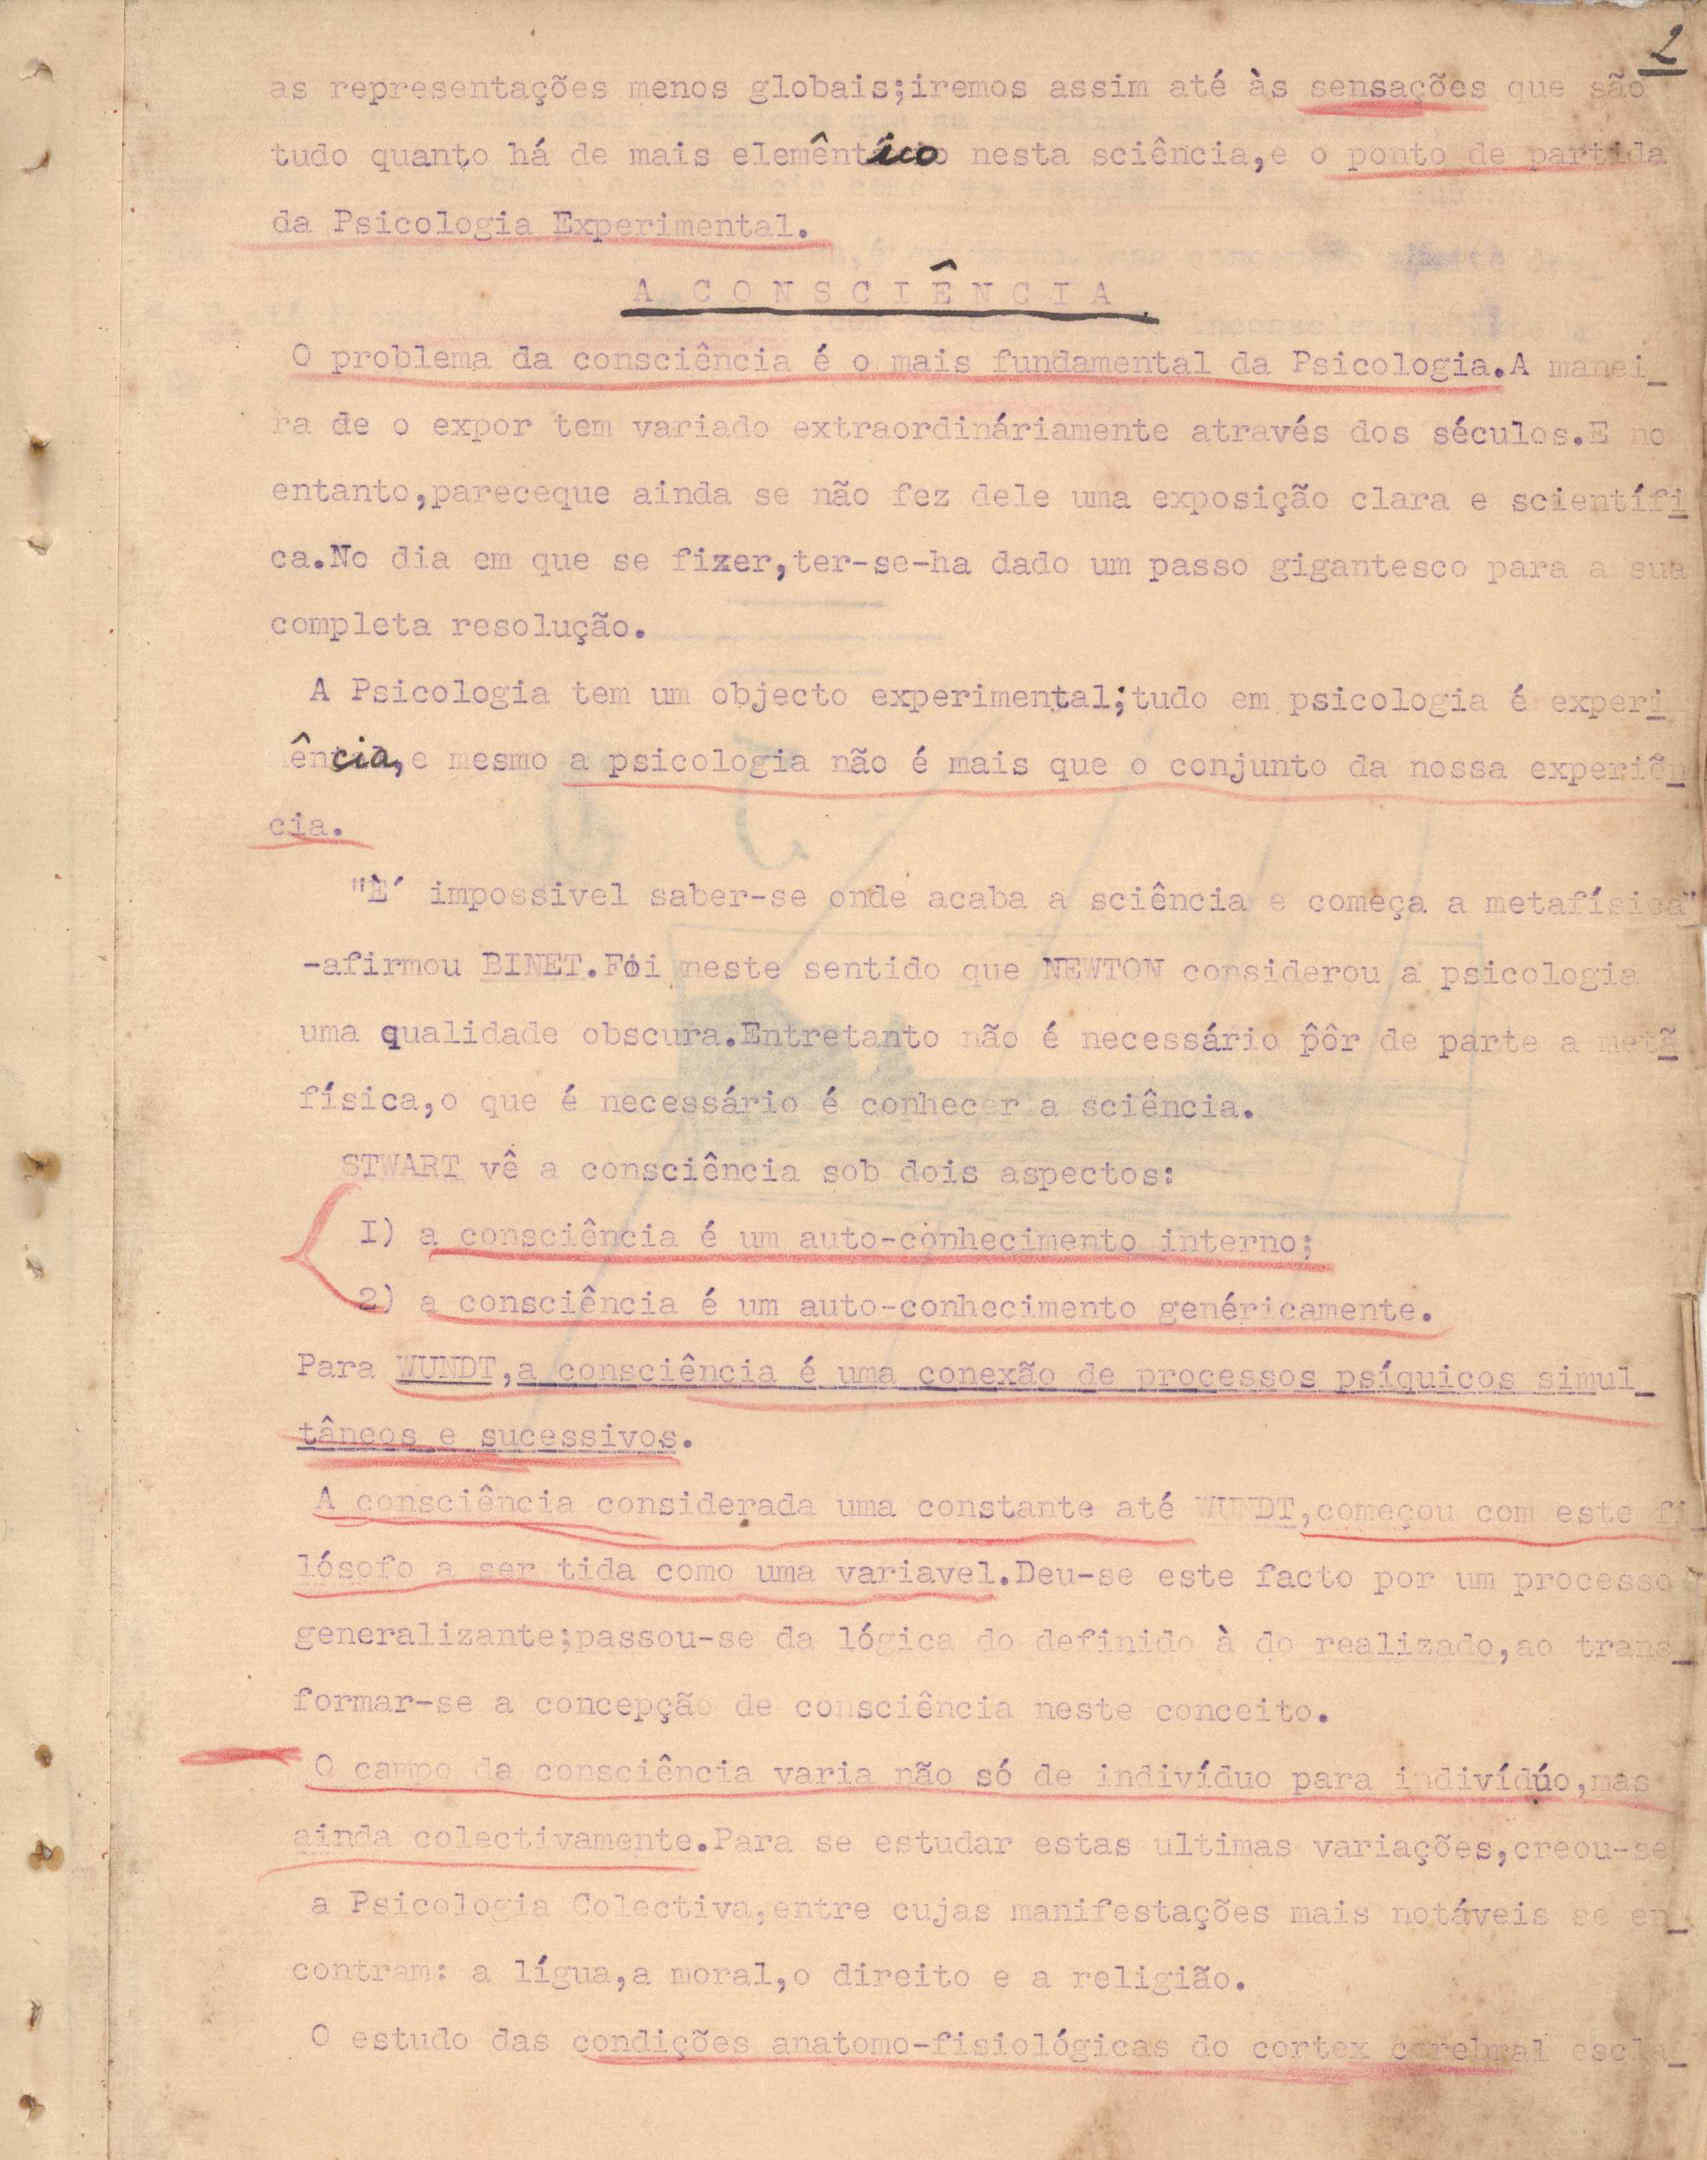 2
as representações menos globais;iremos assim até às sensações que são
tudo quanto há de mais elemêntico nesta sciência,e o ponto de partida
da Psicologia Experimental.
A CONSCIÊNCIA
O problema da consciência é o mais fundamental da Psicologia.A manei_
ra de o expor tem variado extraordináriamente através dos séculos.E no
entanto,pareceque ainda se não fez dele uma exposição clara e scientífi
ca.No dia em que se fixer,ter-se-ha dado um passo gigantesco para a sua
completa resolução.
A Psicologia tem um objecto experimental;tudo em psicologia é experi
ência,e mesmo a psicologia não é mais que o conjunto da nossa experiên
cia.
"È´ impossivel saber-se onde acaba a sciência e começa a metafísica"
-afirmou BINET.Foi neste sentido que NEWTON considerou a psicologia
uma qualidade obscura.Entretanto não é necessário pôr de parte a metã
física,o que é necessário é conhecer a sciência.
STWART vê a consciência sob dois aspectos:
I) a consciência é um auto-conhecimento interno;
2) a consciência é um auto-conhecimento genéricamente.
Para WUNDT,a consciência é uma conexão de processos psíquicos simul_
tâneos e sucessivos.
A consciência considerada uma constante até WUNDT,começou com este fi
lósofo a ser tida como uma variavel.Deu-se este facto por um processo
generalizante;passou-se da lógica do definido à do realizado,ao trans_
formar-se a concepção de consciência neste conceito.
O campo da consciência varia não só de indivíduo para indivídúo,mas
ainda colectivamente.Para se estudar estas ultimas variações,creou-se
a Psicologia Colectiva,entre cujas manifestações mais notáveis se en_
contram: a lígua,a moral,o direito e a religião.
O estudo das condições anatomo-fisiológicas do cortex cerebral escla_